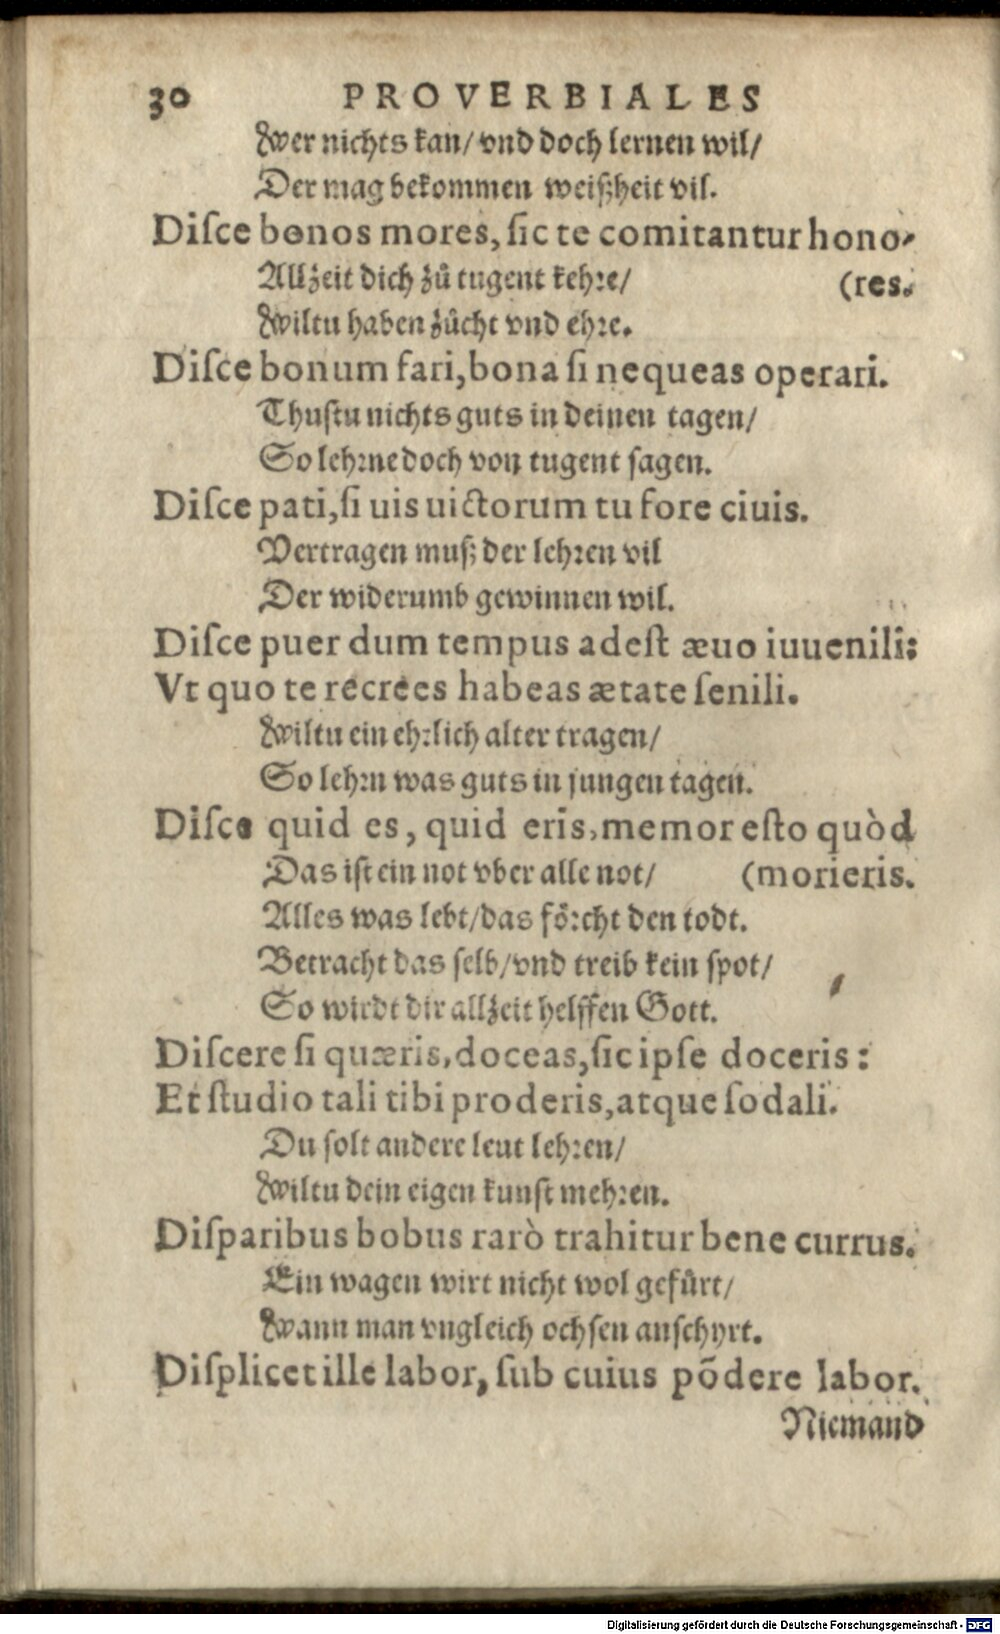 30 PROVERBIALES
Wer nichts kan/ vnd doch lernen wil/
Der mag bekommen weißheit vil.
Diſce bonos mores, ſic te comitantur hono-
Allzeit dich zů tugent kehꝛe/ (res.
Wiltu haben zůcht vnd ehꝛe.
Diſce bonum fari, bona ſi nequeas operari.
Thuſtu nichts guts in deinen tagen/
So lehꝛne doch von tugent ſagen.
Diſce pati, ſi uis uictorum tu fore ciuis.
Vertragen muß der lehꝛen vil
Der widerumb gewinnen wil.
Diſce puer dum tempus adeſt æuo iuuenili:
Vt quo te recrees habeas ætate ſenili.
Wiltu ein ehꝛlich alter tragen/
So lehꝛn was guts in jungen tagen.
Diſce quid es, quid eris, memor eſto quòd
Das iſt ein not vber alle not/ (morieris.
Alles was lebt/das föꝛcht den todt.
Betracht das ſelb/vnd treib kein ſpot/
So wirdt dir allzeit helffen Gott.
Diſcere ſi quæris, doceas, ſic ipſe doceris:
Et ſtudio tali tibi proderis, atque ſodali.
Du ſolt andere leut lehꝛen/
Wiltu dein eigen kunſt mehꝛen.
Diſparibus bobus rarò trahitur bene currus.
Ein wagen wirt nicht wol gefůrt/
Wann man vngleich ochſen anſchyrt.
Diſplicet ille labor, ſub cuius põdere labor.
Niemand
Digitalisierung gefördert durch die Deutsche Forschungsgemeinschaft - DFG